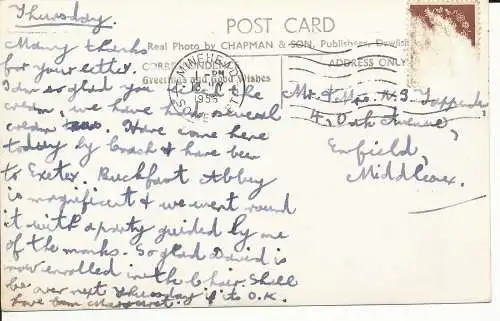 Thursday.
POST CARD
Many thanks
Real Photo by CHAPMAN & SON, Publishers, Dawlish
for your letter.
CORRESPONDENCE
ADDRESS ONLY
Greetings and Good Wishes
MINEHEAD
1955
SOMERSET
I'm so glad you the
we have had several
. Have come here
today by coach & have been
to Exeter. Buckfast Abbey
is magnificent & we went round
it with a party guided by one
of the monks. So glad David is
now enrolled in the Choir. Shall
be over next Thursday if its O.K.
have been
Mr. & Mrs. H.G.
4, Oak Avenue,
Enfield,
Middlesex.